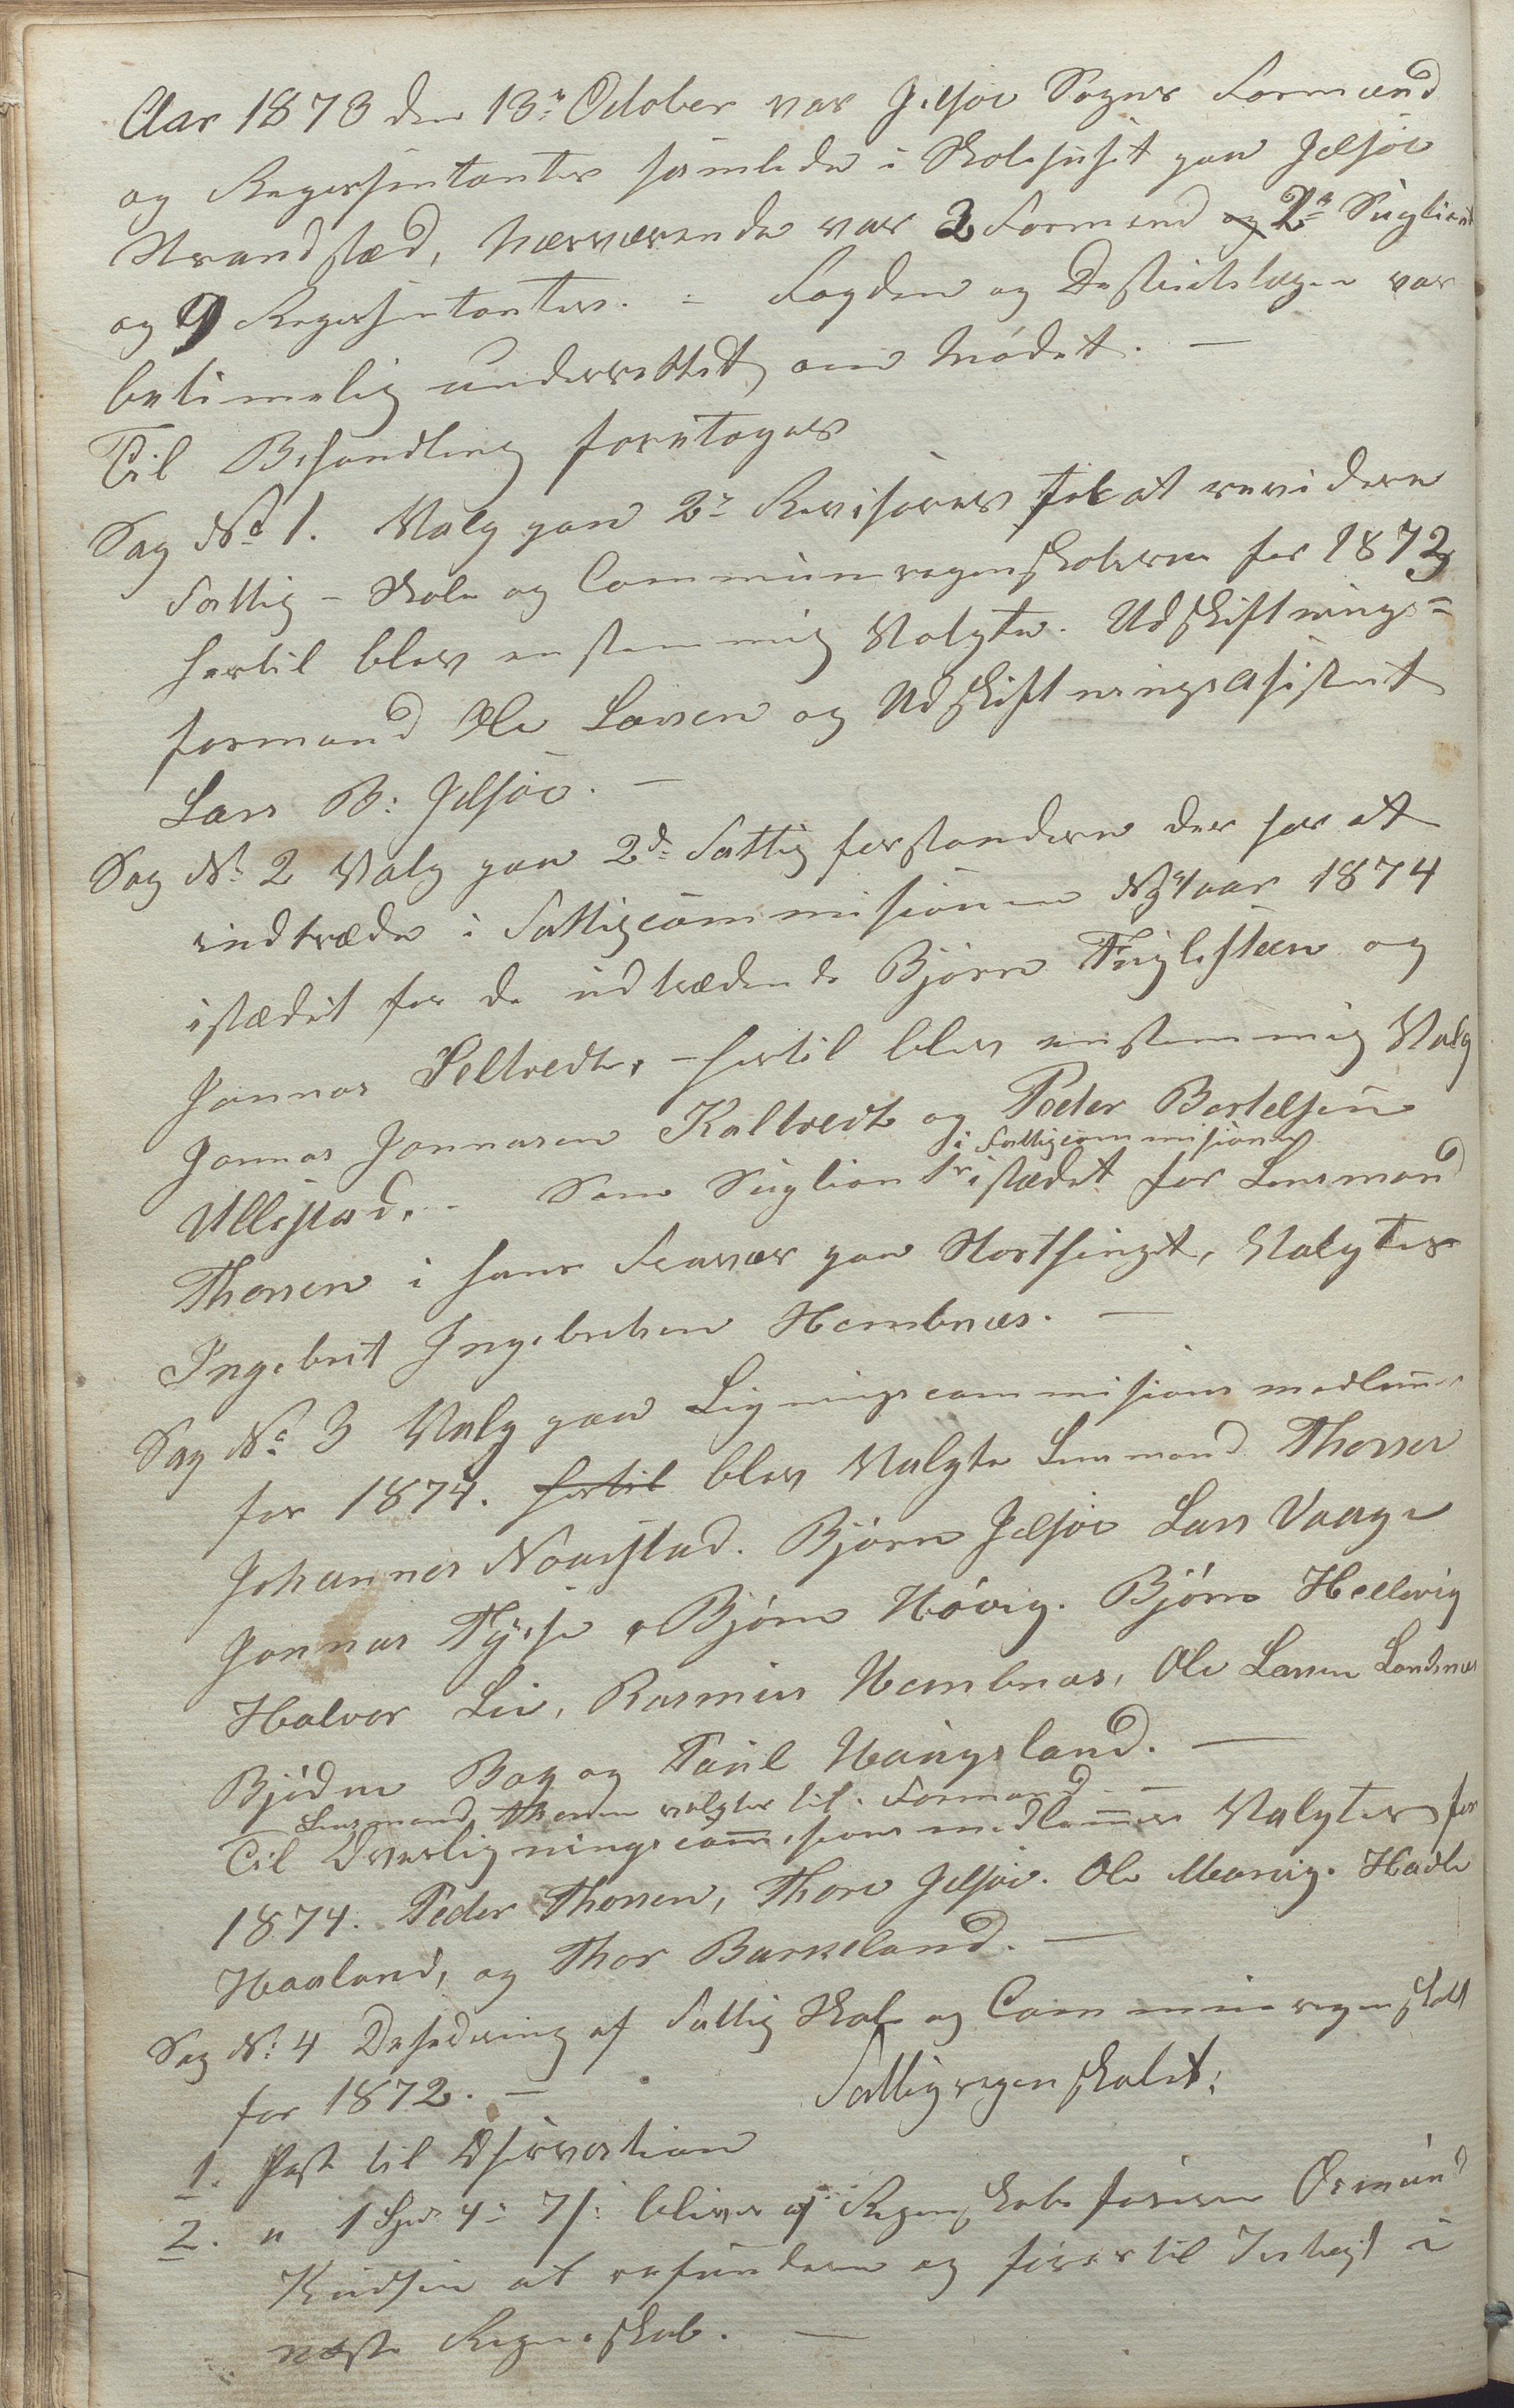 Aar 1873 den 13de October var Jelsøe Sogns Formænd
og Repræsentanter samlede i Skolehuset paa Jelsøe
Strandsted, Nærværende var 3 Formænd og 2de Supliant
og 9 Repræsentanter. = Fogden og Destrictslægen var
betimelig underrettet om Mødet. —
Til Behandling foretoges
Sag No 1. Valg paa 2de Revisorer til at revidere
Fattig- Skole og Communeregenskaberne for 1873
hertil blev enstemmig Valgte. Udskiftnings-
formand Ole Larsen og Udskiftningsasistent
Lars B: Jelsøe. —
Sag No 2 Valg paa 2de Fattigforstandere der har at
indtræde i Fattigcommisionen Nytaar 1874
istædet for de udtrædende Bjørn Fuglesteen og
Jonnas Seltvedt, - hertil blev enstemmig Valg
Jonnas Jonnasen Kaltvedt og Peder Bertelsen
i Fattigcommisionen
Ullestad. - Som Suplient istædet for Lensmand
Thorsen i hans Fravær paa Storthinget, Valgtes
Ingebret Ingebretsen Hembnæs. —
Sag No 3 Valg paa Ligningscommisions medlemer
for 1874. hertil blev Valgte Lensmand Thorsen
Johannes Noarstad. Bjørn Jelsøe Lars Vaage
Jonnas Tysse, Bjørn Høvig. Bjørn Hellevig
Halvor Lie, Rasmus Hembnæs, Ole Larsen Landsnæs
Bjødne Bog og Poul Haugsland. —
Lensmand Thorsen valgtes til Formand —
Til Overligningscommisions medlemer Valgtes for
1874. Peder Thorsen, Thore Jelsøe. Ole Marvig. Hadle
Haaland, og Thor Barkeland. —
Sag No 4 Desedering af Fattig Skole og Communeregenskab
for 1872. — Fattigregenskabet:
1. Post til Observation
2. " 1 Spd 4 : 7 s: bliver af Regenskabsføreren Osmund
Knudsen at refundere og føres til Indtægt i
næste Regenskab. —